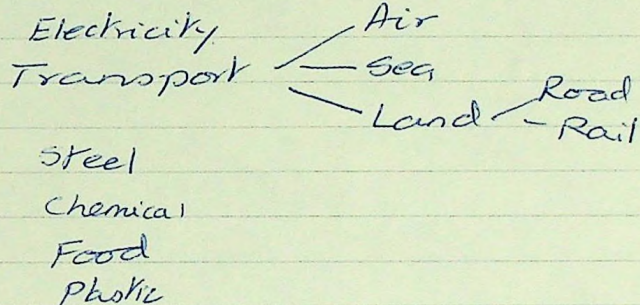 Electricity
Air
Transport
Sea
Land
Road
Rail
Steel
Chemical
Food
Plastic